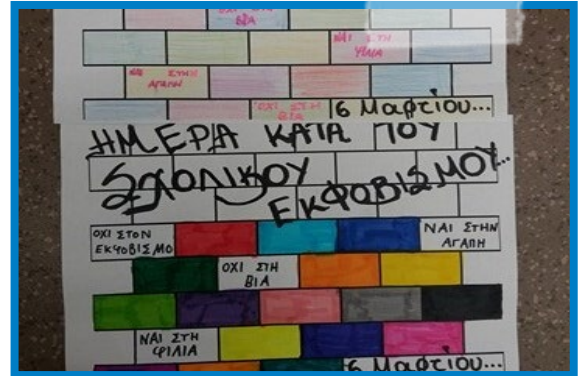 ΟΧΙ ΣΤΗ
ΒΙΑ
ΝΑΙ ΣΤΗ
ΦΙΛΙΑ
ΝΑΙ ΣΤΗΝ
ΑΓΑΠΗ
ΟΧΙ ΣΤΗ
ΒΙΑ
6 Μαρτίου...
ΗΜΕΡΑ ΚΑΤΑ ΤΟΥ
ΣΧΟΛΙΚΟΥ
ΕΚΦΟΒΙΣΜΟΥ...
ΟΧΙ ΣΤΟΝ
ΕΚΦΟΒΙΣΜΟ
ΝΑΙ ΣΤΗΝ
ΑΓΑΠΗ
ΟΧΙ ΣΤΗ
ΒΙΑ
ΝΑΙ ΣΤΗ
ΦΙΛΙΑ
6 Μαρτίου...